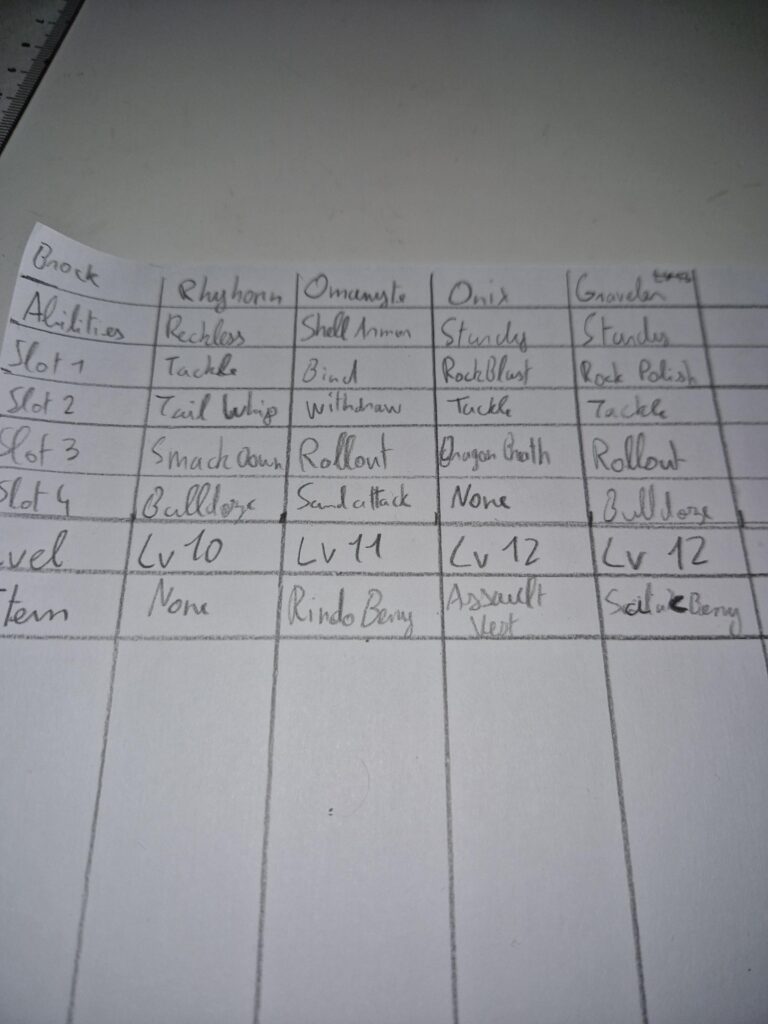 Brock Rhyhorn Omanyte Onix Graveler
Abilities Reckless Shell Armor Sturdy Sturdy
Slot 1 Tackle Bind Rock Blast Rock Polish
Slot 2 Tail Whip Withdraw Tackle Tackle
Slot 3 Smack Down Rollout Dragon Breath Rollout
Slot 4 Bulldoze Sand attack None Bulldoze
vel Lv 10 Lv 11 Lv 12 Lv 12
Item None Rindo Berry Assault Berry
Vest